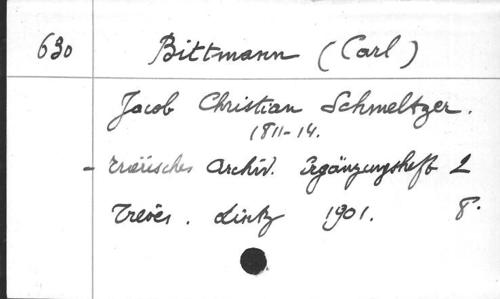 630 Bittmann (Carl)
Jacob Christian Schmeltzer.
1811-14.
- Trierisches Archiv. Ergänzungsheft 2
Trèves. Lintz 1901. 8°.